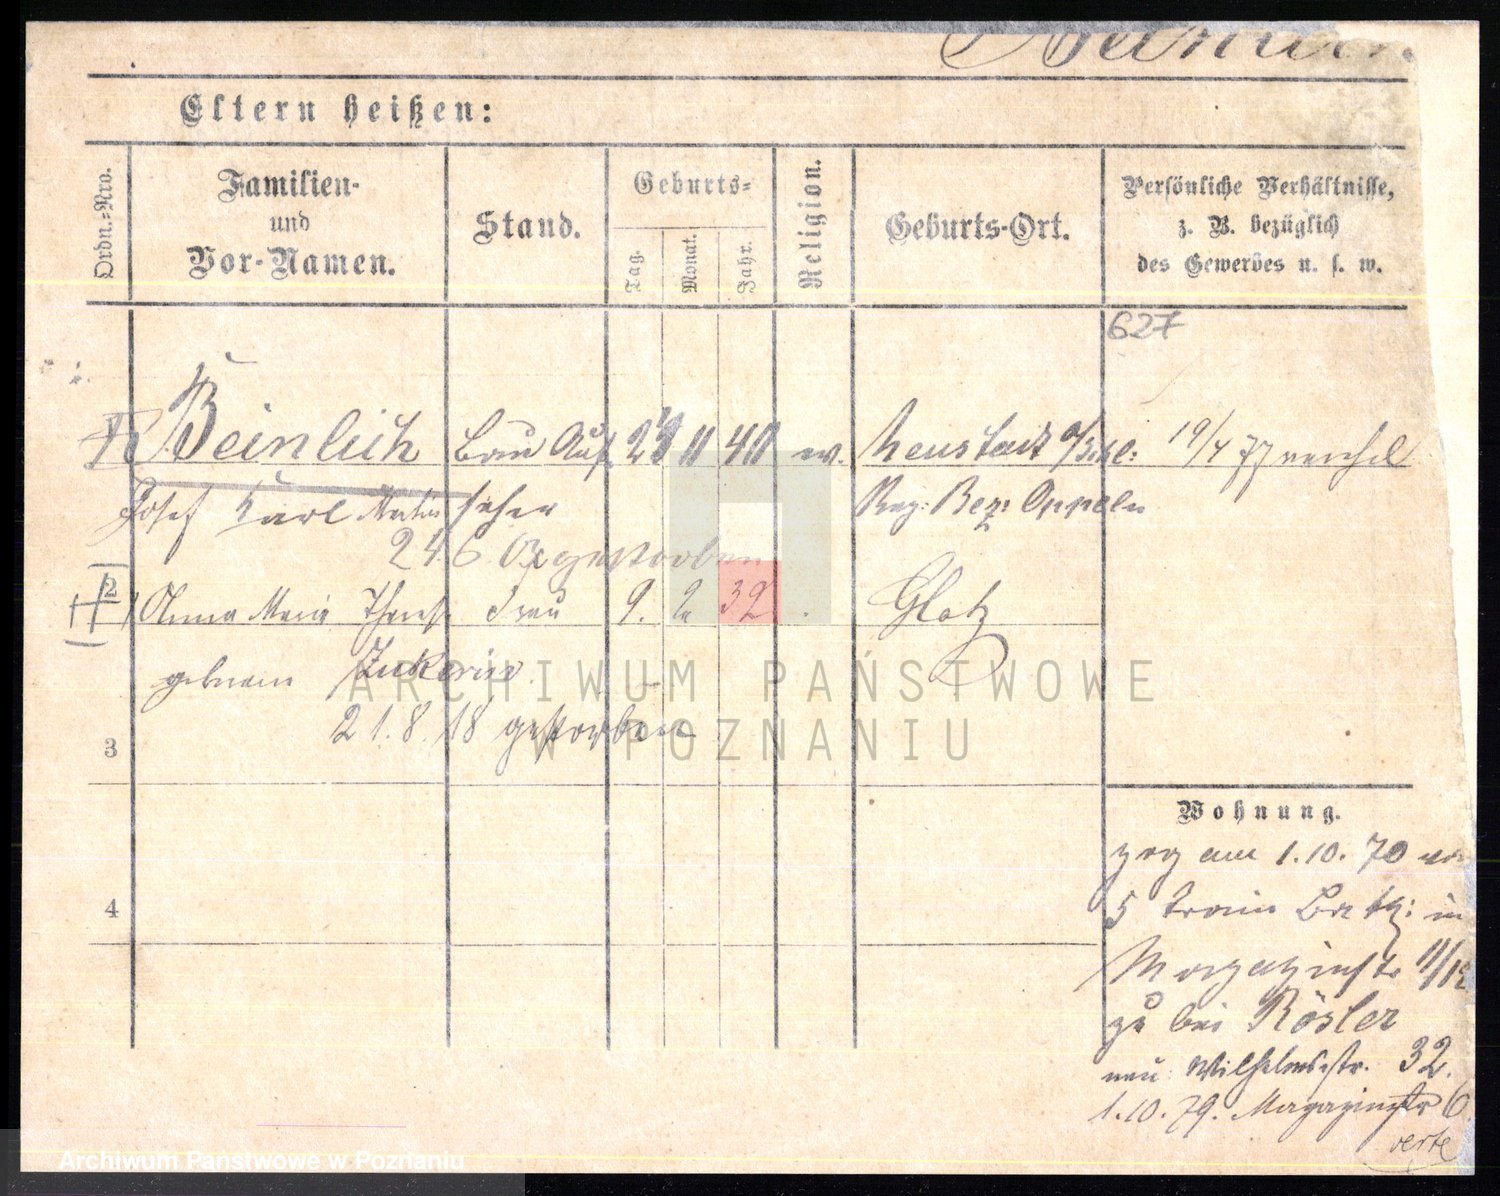 Eltern heißen:
Ordn.-Nro.
Familien-
und
Vor-Namen.
Stand.
Geburts-
Tag.
Monat.
Jahr.
Religion.
Geburts-Ort.
Persönliche Verhältnisse,
z. B. bezüglich
des Gewerbes u. s. w.
627
Beinlich Bau Auf 11 40 Neustadt o/Schl: 19/4 77
Josef Karl seher Reg: Bez: Oppeln
24 6 gestorben
2 Anna Maria Frau 9. 2 32 Glatz
geborene
21. 8. 18 gestorben
3
Wohnung.
zog am 1. 10. 70
5 Train Bat: in
4
Magazinstr 11/12
zu bei Rösler
neu Wilhelmstr. 32.
1. 10. 79. Magazinstr 6
verte
ARCHIWUM PAŃSTWOWE
W POZNANIU
Archiwum Państwowe w Poznaniu